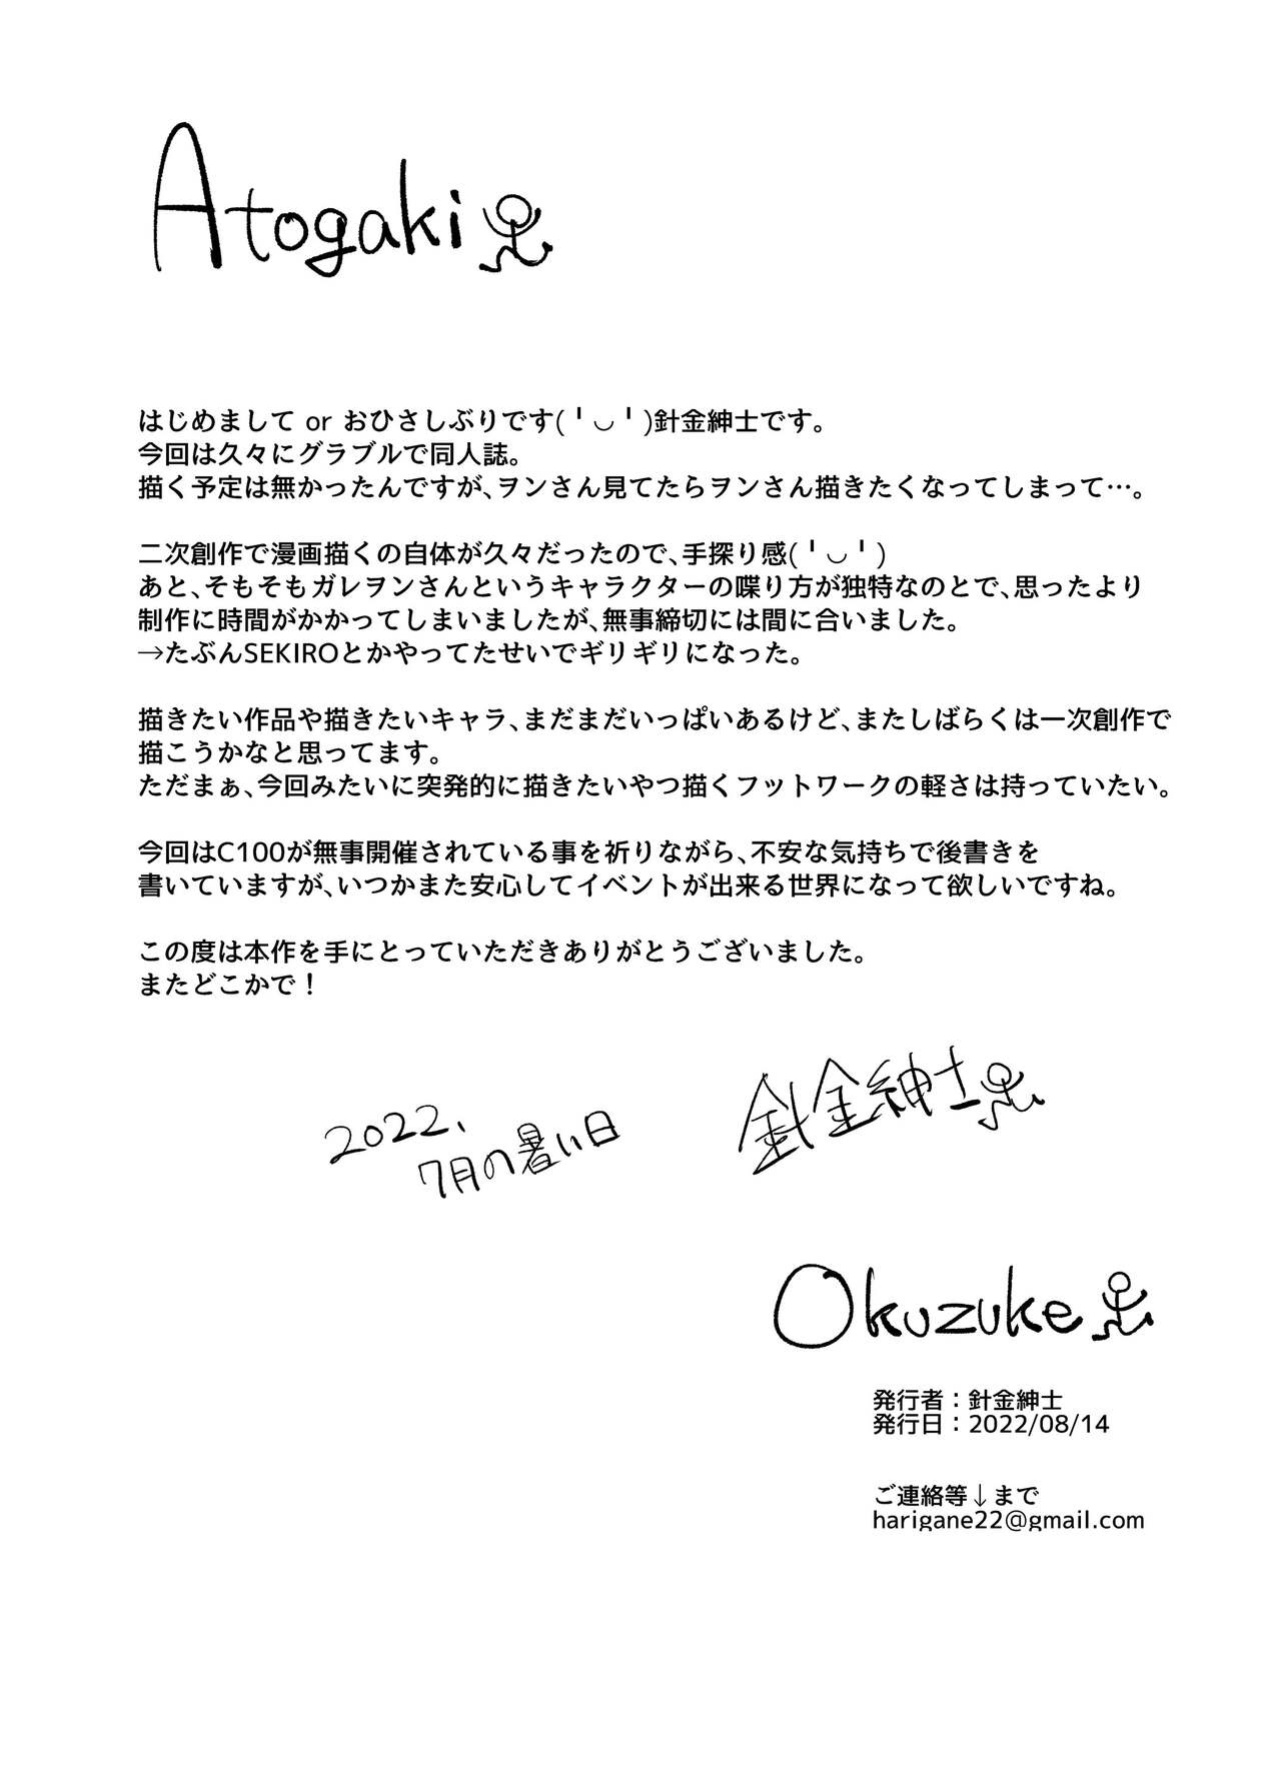 Atogaki
はじめまして or おひさしぶりです( ╹◡╹)針金紳士です。
今回は久々にグラブルで同人誌。
描く予定は無かったんですが、ヲンさん見てたらヲンさん描きたくなってしまって…。
二次創作で漫画描くの自体が久々だったので、手探り感( ╹◡╹)
あと、そもそもガレヲンさんというキャラクターの喋り方が独特なのとで、思ったより
制作に時間がかかってしまいましたが、無事締切には間に合いました。
→たぶんSEKIROとかやってたせいでギリギリになった。
描きたい作品や描きたいキャラ、まだまだいっぱいあるけど、またしばらくは一次創作で
描こうかなと思ってます。
ただまぁ、今回みたいに突発的に描きたいやつ描くフットワークの軽さは持っていたい。
今回はC100が無事開催されている事を祈りながら、不安な気持ちで後書きを
書いていますが、いつかまた安心してイベントが出来る世界になって欲しいですね。
この度は本作を手にとっていただきありがとうございました。
またどこかで！
2022、
7月の暑い日
針金紳士
Okuzuke
発行者：針金紳士
発行日：2022/08/14
ご連絡等↓まで
harigane22@gmail.com